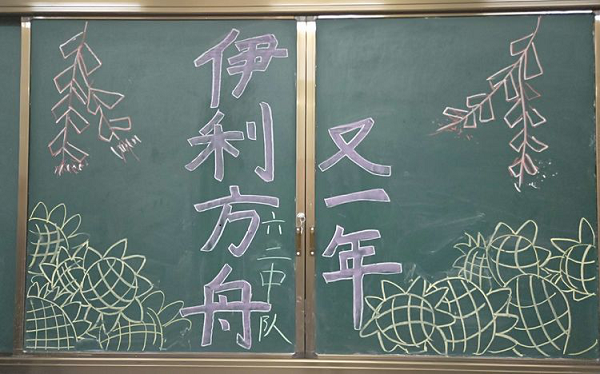 伊利方舟
六二中队
又一年